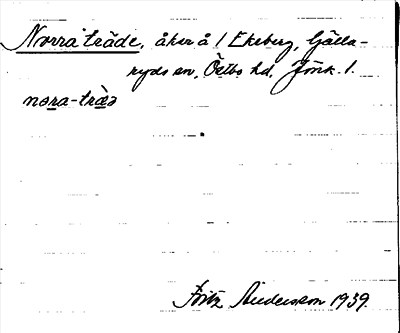 Norra träde, åker å 1 Ekeberg, Gälla-
ryds sn, Östbo hd, Jönk. l.
nora-träd
Fritz Andersson 1939.